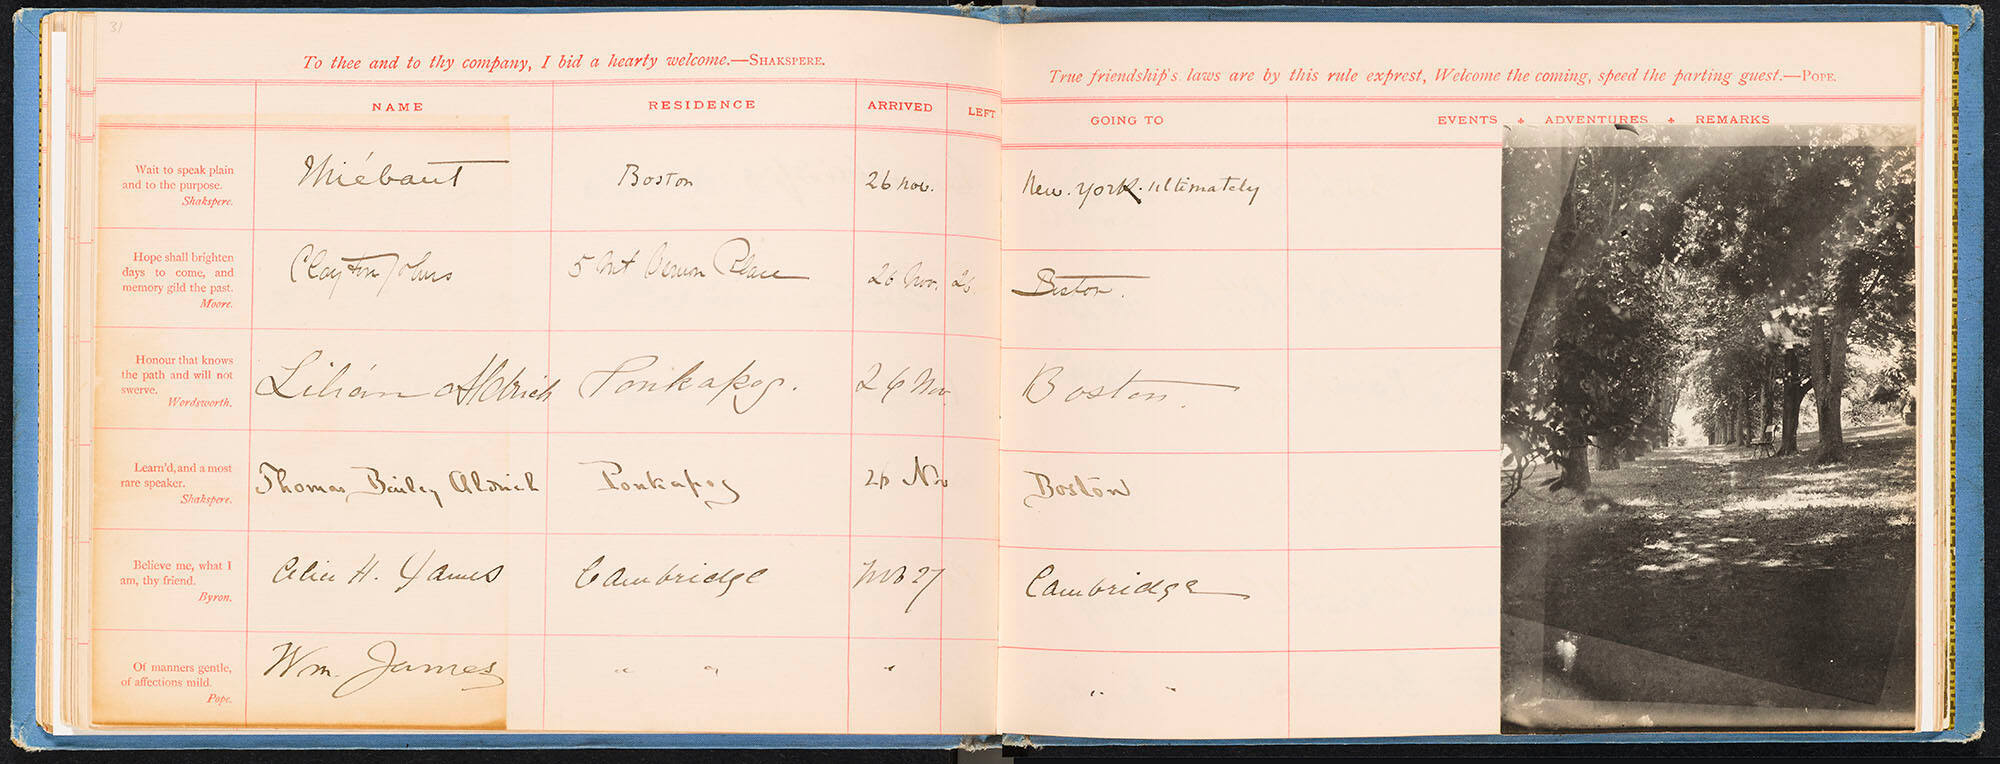 31
To thee and to thy company, I bid a hearty welcome.—SHAKSPERE.
NAME RESIDENCE ARRIVED LEFT
Wait to speak plain
and to the purpose.
Shakspere.
Thiébaut Boston 26 Nov.
Hope shall brighten
days to come, and
memory gild the past.
Moore.
Clayton Johns 5 Mt Vernon Place 26 Nov. 26
Honour that knows
the path and will not
swerve.
Wordsworth.
Lilian Aldrich Ponkapog. 26 Nov.
Learn'd, and a most
rare speaker.
Shakspere.
Thomas Bailey Aldrich Ponkapog 26 Nov
Believe me, what I
am, thy friend.
Byron.
Alice H. James Cambridge Nov 27
Of manners gentle,
of affections mild.
Pope.
Wm. James " " "
True friendship's laws are by this rule exprest, Welcome the coming, speed the parting guest.—POPE.
GOING TO EVENTS + ADVENTURES + REMARKS
New. York. ultimately
Boston.
Boston.
Boston
Cambridge
" "